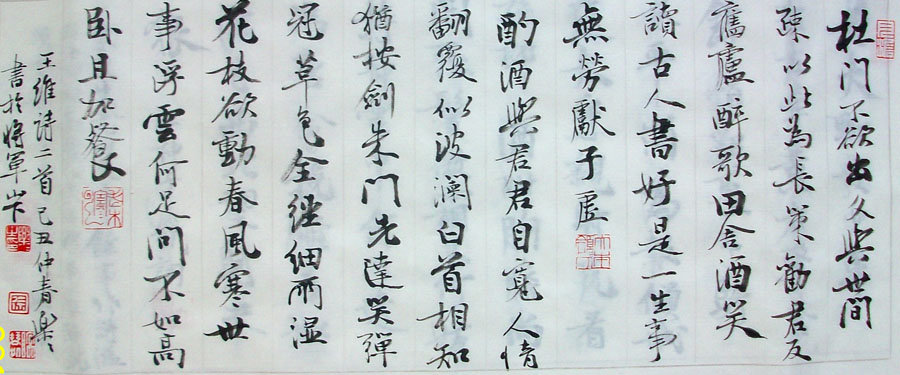 杜门不欲出久與世間
疎以此為長策勸君反
舊廬醉歌田舍酒笑
讀古人書好是一生事
無勞獻子虛
酌酒與君君自寬人情
翻覆似波瀾白首相知
猶按劍朱門先達笑彈
冠草色全经细雨湿
花枝欲動春風寒世
事浮雲何足問不如高
卧且加餐
王維詩二首己丑仲春
書於将軍山下